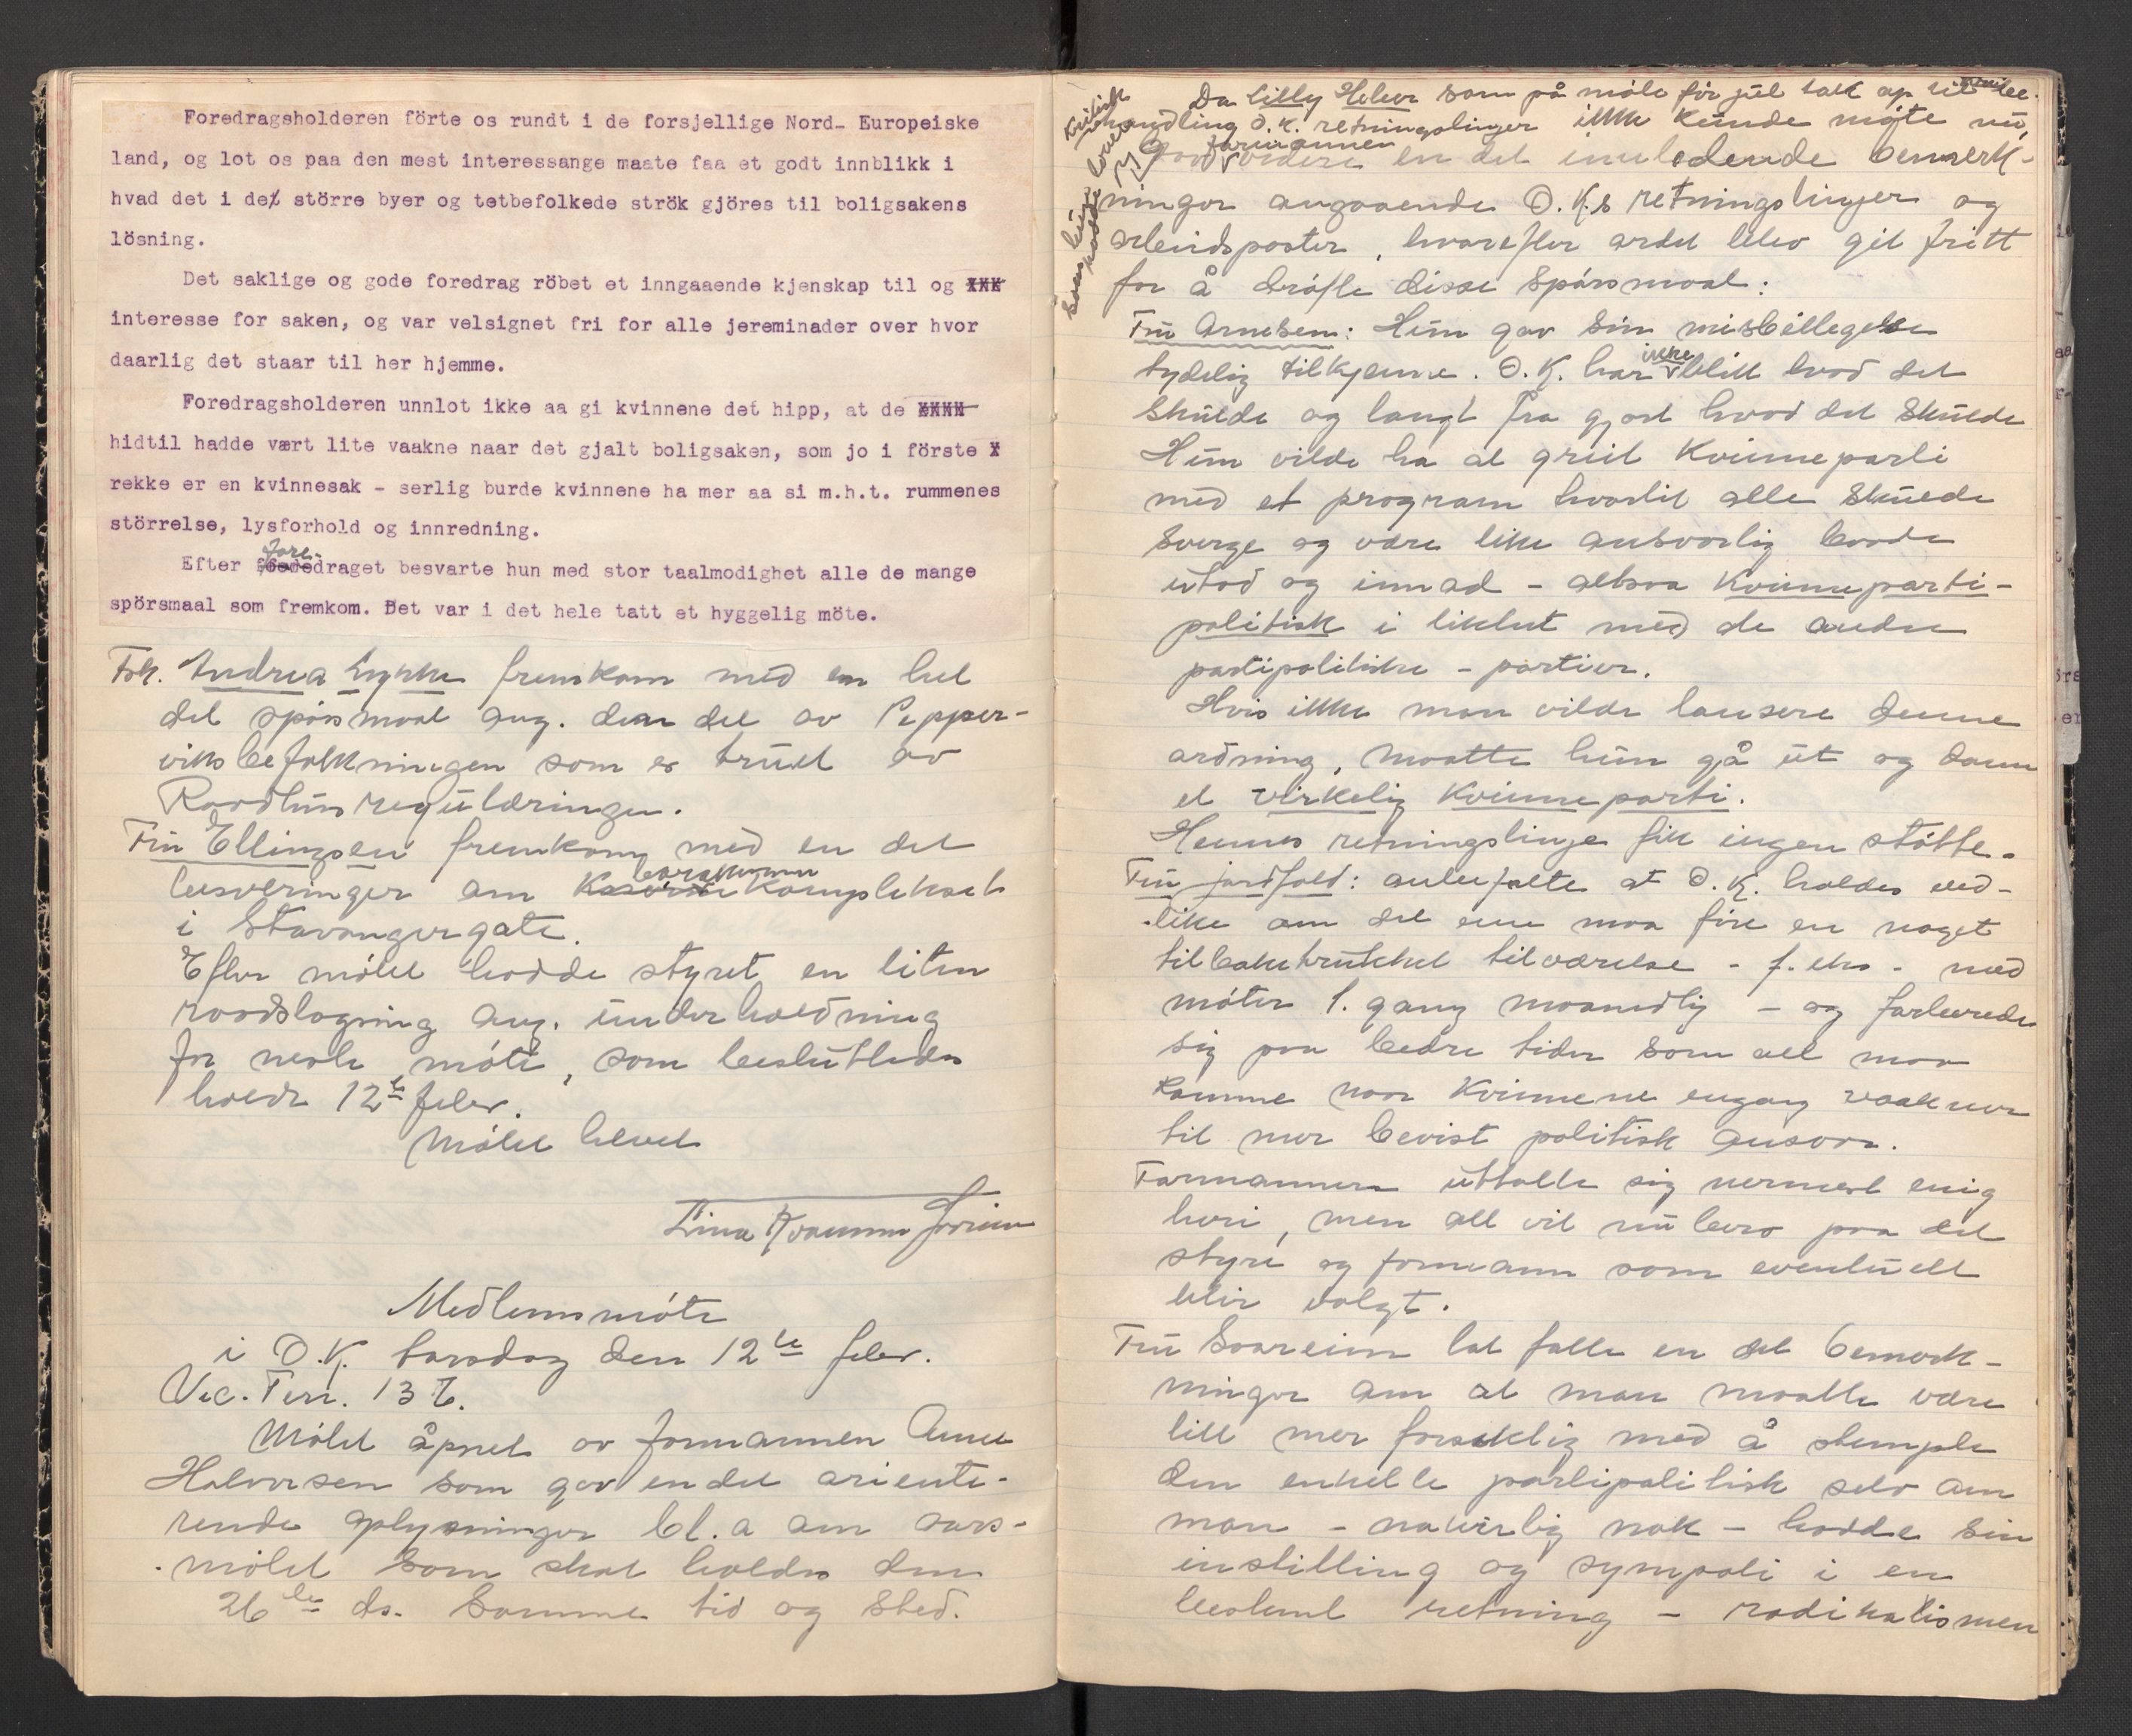 Foredragsholderen förte os rundt i de forsjellige Nord- Europeiske
land, og lot os paa den mest interessange maate faa et godt innblikk i
hvad det i de större byer og tetbefolkede strök gjöres til boligsakens
lösning.
Det saklige og gode foredrag röbet et inngaaende kjenskap til og xxx
interesse for saken, og var velsignet fri for alle jereminader over hvor
daarlig det staar til her hjemme.
Foredragsholderen unnlot ikke aa gi kvinnene det hipp, at de xxxx
hidtil hadde vært lite vaakne naar det gjalt boligsaken, som jo i förste x
rekke er en kvinnesak - serlig burde kvinnene ha mer aa si m.h.t. rummenes
störrelse, lysforhold og innredning.
Efter foredraget besvarte hun med stor taalmodighet alle de mange
spörsmaal som fremkom. Det var i det hele tatt et hyggelig möte.
Frk. Andrea Lykke fremkom med en hel
del spörsmaal ang. den del av Pipper-
viksbefolkningen som er truet av
Raadhusreguleringen.
Fru Ellingsen fremkom med en del
besveringer om barakkene komplekset
i Stavangergate.
Efter mötet hadde styret en liten
raadslagning ang. underholdning
for neste möte, som besluttedes
holdt 12te febr.
Mötet hevet
Medlemsmöte
i O.K. torsdag den 12te febr.
Vic. Terr. 13 b.
Mötet åpnet av formannen Anne
Halvorsen som gav en del oriente-
rende oplysninger bl.a om aars-
mötet som skal holdes den
26de ds. Samme tid og sted.
Da Lilly Heber som på möte för jul tok op til be-
handling O.K. retningslinger ikke kunde möte nu,
gav formannen en del innledende bemerk-
ninger angaaende O.K.s retningslinjer og
arbeidsposter, hvorefter ordet blev git fritt
for å dröfte disse spörsmaal:
Fru Arnesen: Hun gav sin misbilligelse
tydelig tilkjenne. O.K. har ikke blitt hvad det
skulde og langt fra gjort hvad det skulde
Hun vilde ha et greit Kvinneparti
med et program hvortil alle skulde
sverge og være like ansvarlig baade
utad og innad - altsaa Kvinneparti-
politisk i likhet med de andre
partipolitiske - partier.
Hvis ikke man vilde lansere denne
ordning, maatte hun gå ut og danne
et virkelig Kvinneparti.
Hennes retningslinje fikk ingen stötte.
Fru Jordfald: anbefalte at O.K. holdes ved-
like om det enn maa före en noget
tilbaketrukket tilværelse - f.eks. - med
möter 1. gang maanedlig - og forberede
sig paa bedre tider som all maa
komme naar Kvinnene engang vaakner
til mer bevist politisk ansvar.
Formannen uttalte sig nermest enig
heri, men alt vil nu bero paa det
styre og formann som eventuelt
blir valgt.
Fru Soareim lot falle en del bemerk-
ninger om at man maatte være
litt mer forsiktig med å stemple
den enkelte partipolitisk selv om
man - naturlig nok - hadde sin
instilling og sympati i en
bestemt retning - radikalismen